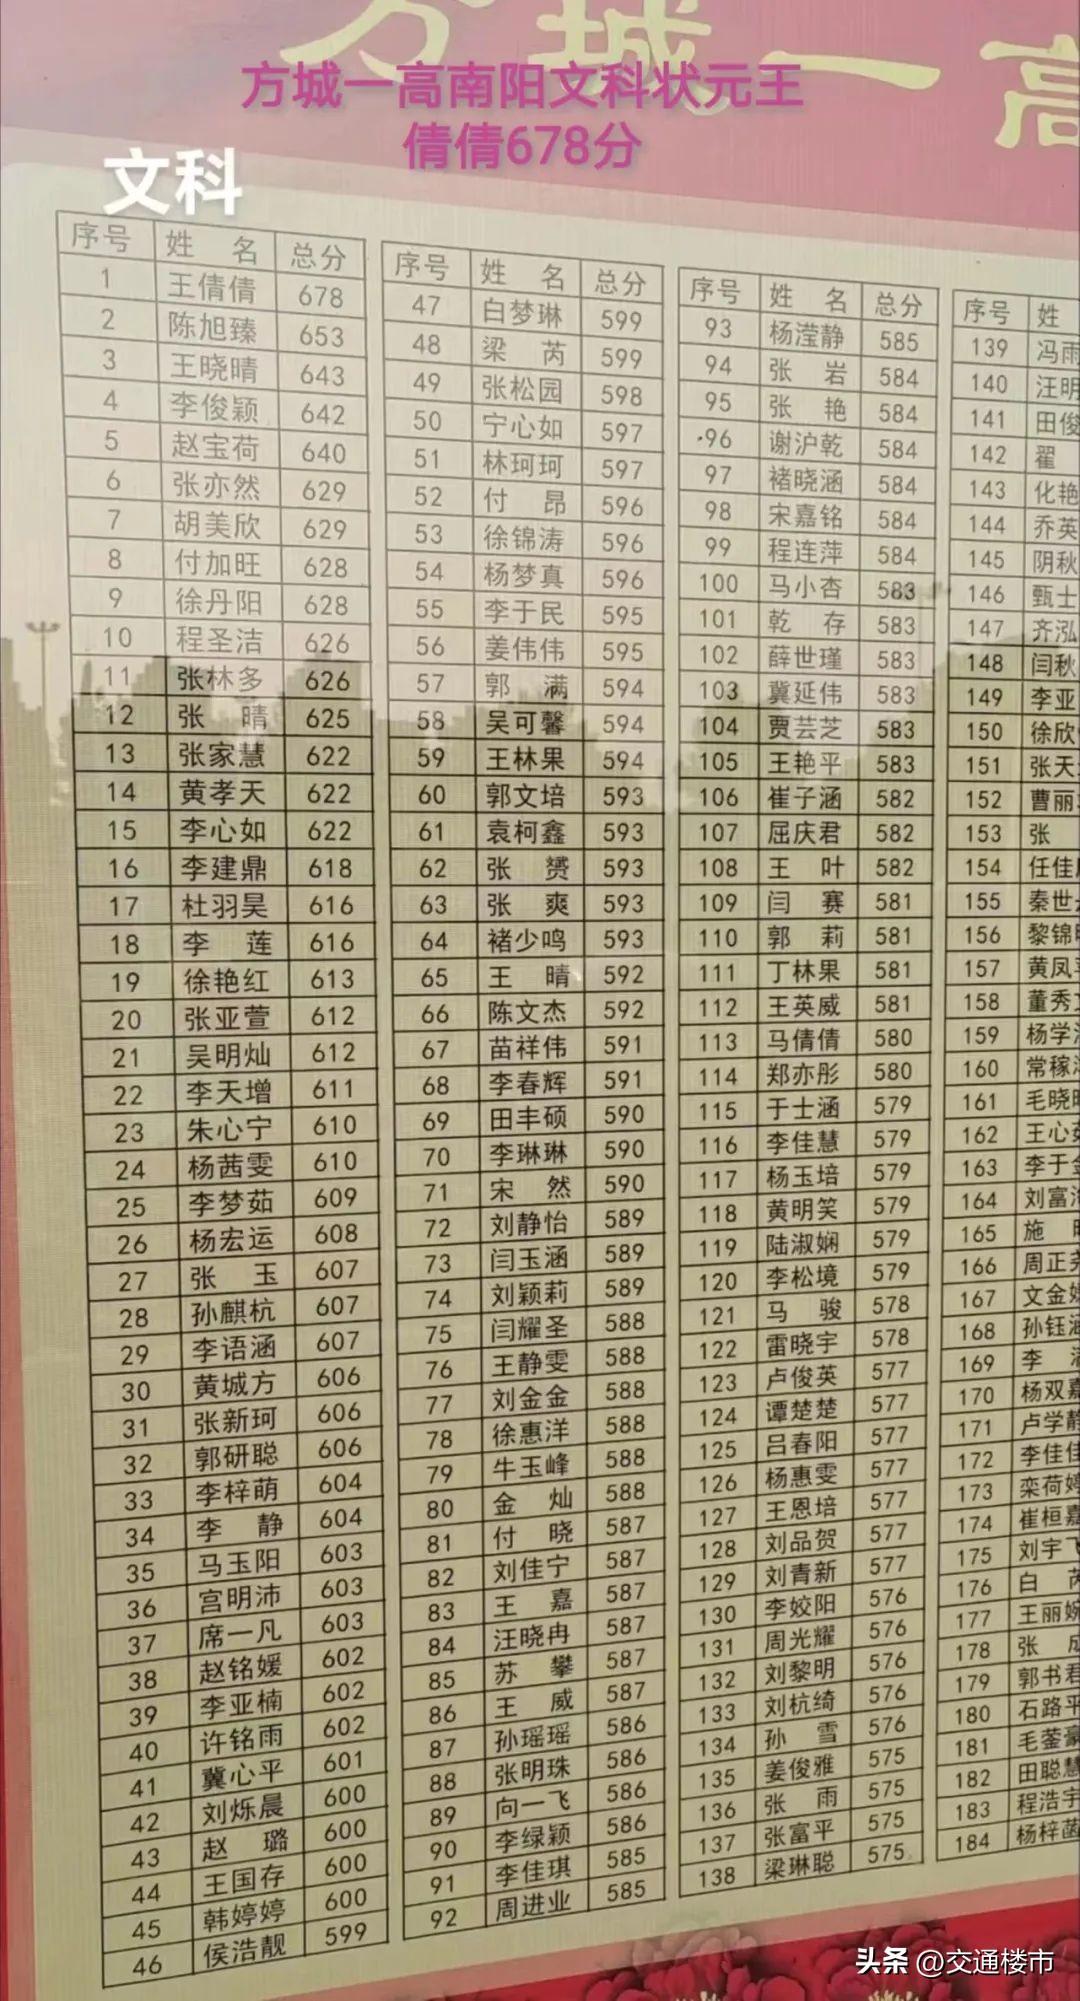 方城一高
方城一高南阳文科状元王
倩倩678分
文科
序号 姓 名 总分
1 王倩倩 678
2 陈旭臻 653
3 王晓晴 643
4 李俊颖 642
5 赵宝荷 640
6 张亦然 629
7 胡美欣 629
8 付加旺 628
9 徐丹阳 628
10 程圣洁 626
11 张林多 626
12 张 晴 625
13 张家慧 622
14 黄孝天 622
15 李心如 622
16 李建鼎 618
17 杜羽昊 616
18 李 莲 616
19 徐艳红 613
20 张亚萱 612
21 吴明灿 612
22 李天增 611
23 朱心宁 610
24 杨茜雯 610
25 李梦茹 609
26 杨宏运 608
27 张 玉 607
28 孙麒杭 607
29 李语涵 607
30 黄城方 606
31 张新珂 606
32 郭研聪 606
33 李梓萌 604
34 李 静 604
35 马玉阳 603
36 宫明沛 603
37 席一凡 603
38 赵铭媛 602
39 李亚楠 602
40 许铭雨 602
41 冀心平 601
42 刘烁晨 600
43 赵 璐 600
44 王国存 600
45 韩婷婷 600
46 侯浩靓 599
序号 姓 名 总分
47 白梦琳 599
48 梁 芮 599
49 张松园 598
50 宁心如 597
51 林珂珂 597
52 付 昂 596
53 徐锦涛 596
54 杨梦真 596
55 李于民 595
56 姜伟伟 595
57 郭 满 594
58 吴可馨 594
59 王林果 594
60 郭文培 593
61 袁柯鑫 593
62 张 赟 593
63 张 爽 593
64 褚少鸣 593
65 王 晴 592
66 陈文杰 592
67 苗祥伟 591
68 李春辉 591
69 田丰硕 590
70 李琳琳 590
71 宋 然 590
72 刘静怡 589
73 闫玉涵 589
74 刘颖莉 589
75 闫耀圣 588
76 王静雯 588
77 刘金金 588
78 徐惠洋 588
79 牛玉峰 588
80 金 灿 588
81 付 晓 587
82 刘佳宁 587
83 王 嘉 587
84 汪晓冉 587
85 苏 攀 587
86 王 威 587
87 孙瑶瑶 586
88 张明珠 586
89 向一飞 586
90 李绿颖 586
91 李佳琪 585
92 周进业 585
序号 姓 名 总分
93 杨滢静 585
94 张 岩 584
95 张 艳 584
96 谢沪乾 584
97 褚晓涵 584
98 宋嘉铭 584
99 程连萍 584
100 马小杏 583
101 乾 存 583
102 薛世瑾 583
103 冀延伟 583
104 贾芸芝 583
105 王艳平 583
106 崔子涵 582
107 屈庆君 582
108 王 叶 582
109 闫 赛 581
110 郭 莉 581
111 丁林果 581
112 王英威 581
113 马倩倩 580
114 郑亦彤 580
115 于士涵 579
116 李佳慧 579
117 杨玉培 579
118 黄明笑 579
119 陆淑娴 579
120 李松境 579
121 马 骏 578
122 雷晓宇 578
123 卢俊英 577
124 谭楚楚 577
125 吕春阳 577
126 杨惠雯 577
127 王恩培 577
128 刘品贺 577
129 刘青新 577
130 李姣阳 576
131 周光耀 576
132 刘黎明 576
133 刘杭绮 576
134 孙 雪 576
135 姜俊雅 575
136 张 雨 575
137 张富平 575
138 梁琳聪 575
序号 姓
139 冯雨
140 汪明
141 田俊
142 翟
143 化艳
144 乔英
145 阴秋
146 甄士
147 齐泓
148 闫秋
149 李亚
150 徐欣
151 张天
152 曹丽
153 张
154 任佳
155 秦世
156 黎锦
157 黄凤
158 董秀
159 杨学
160 常稼
161 毛晓
162 王心
163 李于
164 刘富
165 施
166 周正
167 文金
168 孙钰
169 李
170 杨双嘉
171 卢学静
172 李佳佳
173 栾荷婷
174 崔桓嘉
175 刘宇飞
176 白 芮
177 王丽婉
178 张 成
179 郭书君
180 石路平
181 毛蓥豪
182 田聪慧
183 程浩宇
184 杨梓菡
头条 @交通楼市